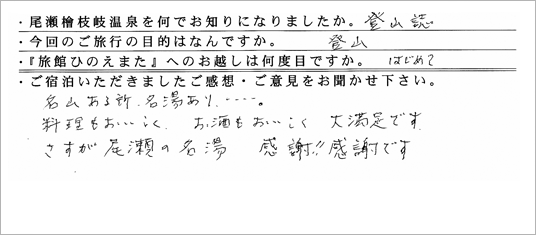 ・尾瀬檜枝岐温泉を何でお知りになりましたか。登山誌
・今回のご旅行の目的はなんですか。 登山
・『旅館ひのえまた』へのお越しは何度目ですか。 はじめて
・ご宿泊いただきましたご感想・ご意見をお聞かせ下さい。
名山ある所、名湯あり、----。
料理もおいしく、お酒もおいしく 大満足です
さすが尾瀬の名湯 感謝!!感謝です